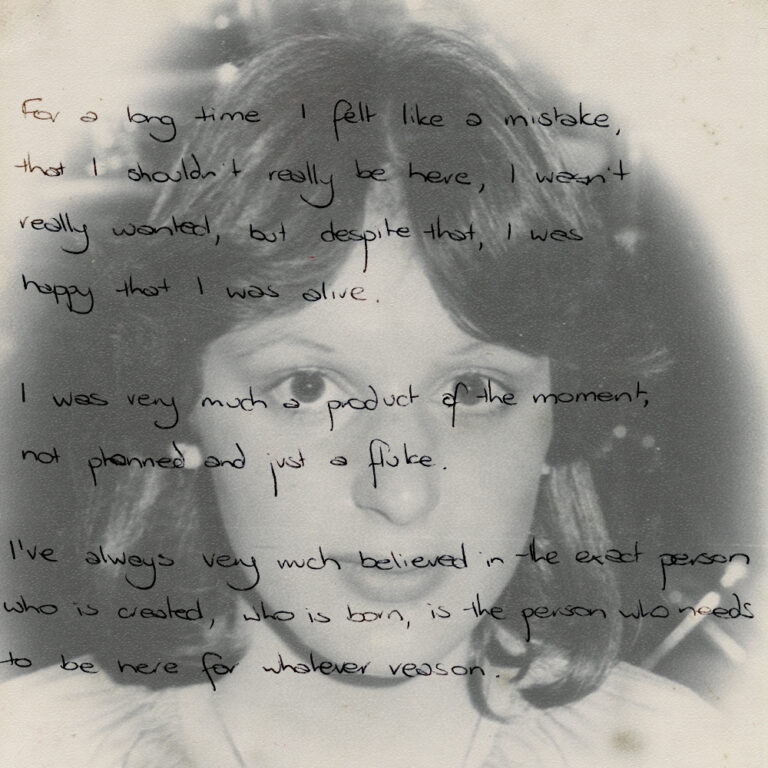 For a long time I felt like a mistake,
that I shouldn't really be here, I wasn't
really wanted, but despite that, I was
happy that I was alive.
I was very much a product of the moment,
not planned and just a fluke.
I've always very much believed in the exact person
who is created, who is born, is the person who needs
to be here for whatever reason.